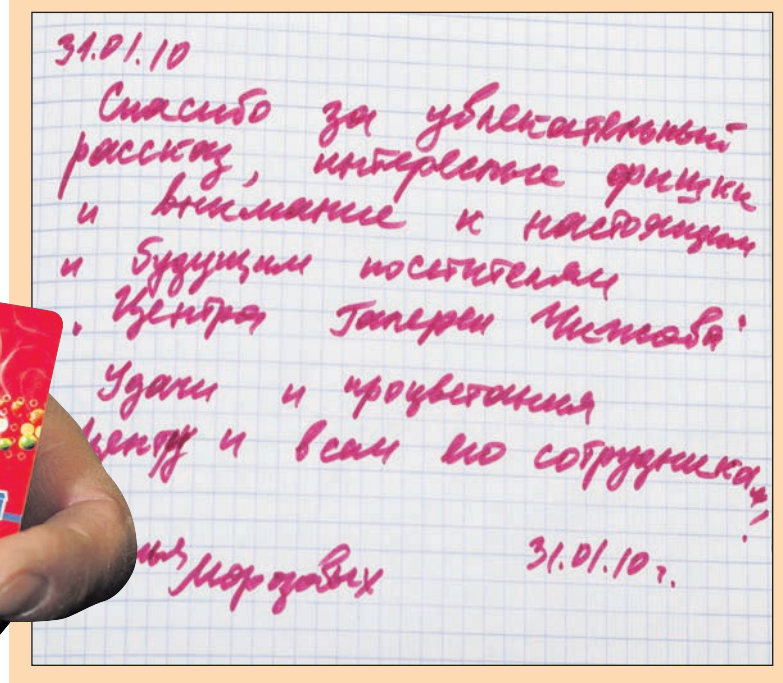 31.01.10
Спасибо за увлекательный
рассказ, интересные фишки
и внимание к настоящим
и будущим посетителям
"Центра Галереи Чижова"
Удачи и процветания
Центру и всем его сотрудникам!
Морозовых
31.01.10 г.